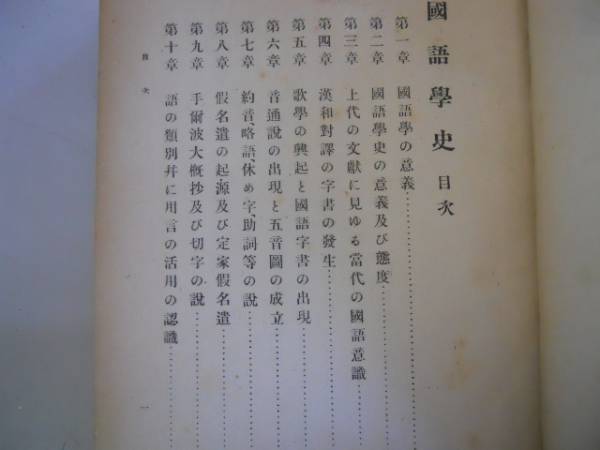 國語學史 目次
第一章 國語學の意義………
第二章 國語學史の意義及び態度………
第三章 上代の文獻に見ゆる當代の國語意識………
第四章 漢和對譯の字書の發生………
第五章 歌學の興起と國語字書の出現………
第六章 音通說の出現と五音圖の成立………
第七章 約音、略語、休め字、助詞等の說………
第八章 假名遣の起源及び定家假名遣………
第九章 手爾波大概抄及び切字の說………
第十章 語の類別幷に用言の活用の認識………
目次
一